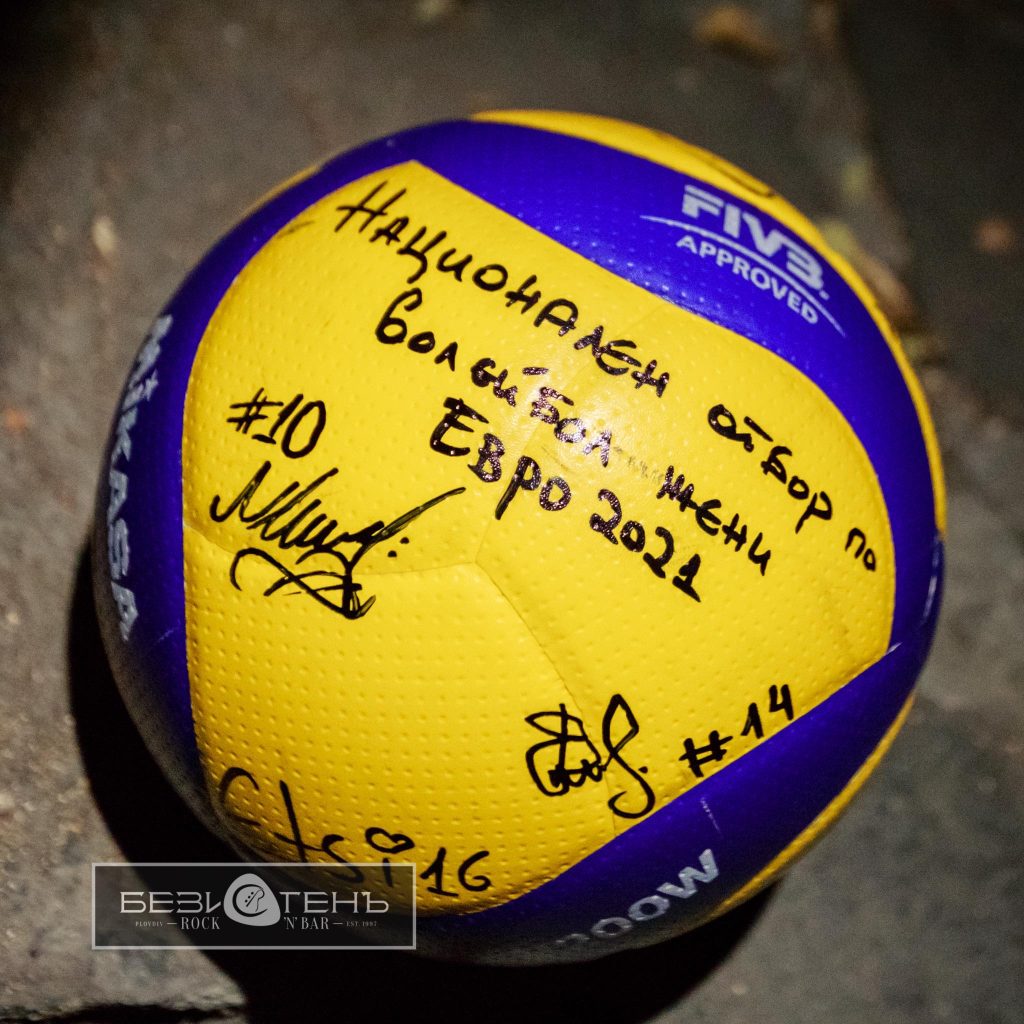 FIVB
APPROVED
НАЦИОНАЛЕН ОТБОР ПО
ВОЛЕЙБОЛ ЖЕНИ
ЕВРО 2021
#10
MIKASA
#14
16
200W
БЕЗИСТЕНЪ
PLOVDIV ROCK 'N' BAR EST. 1997